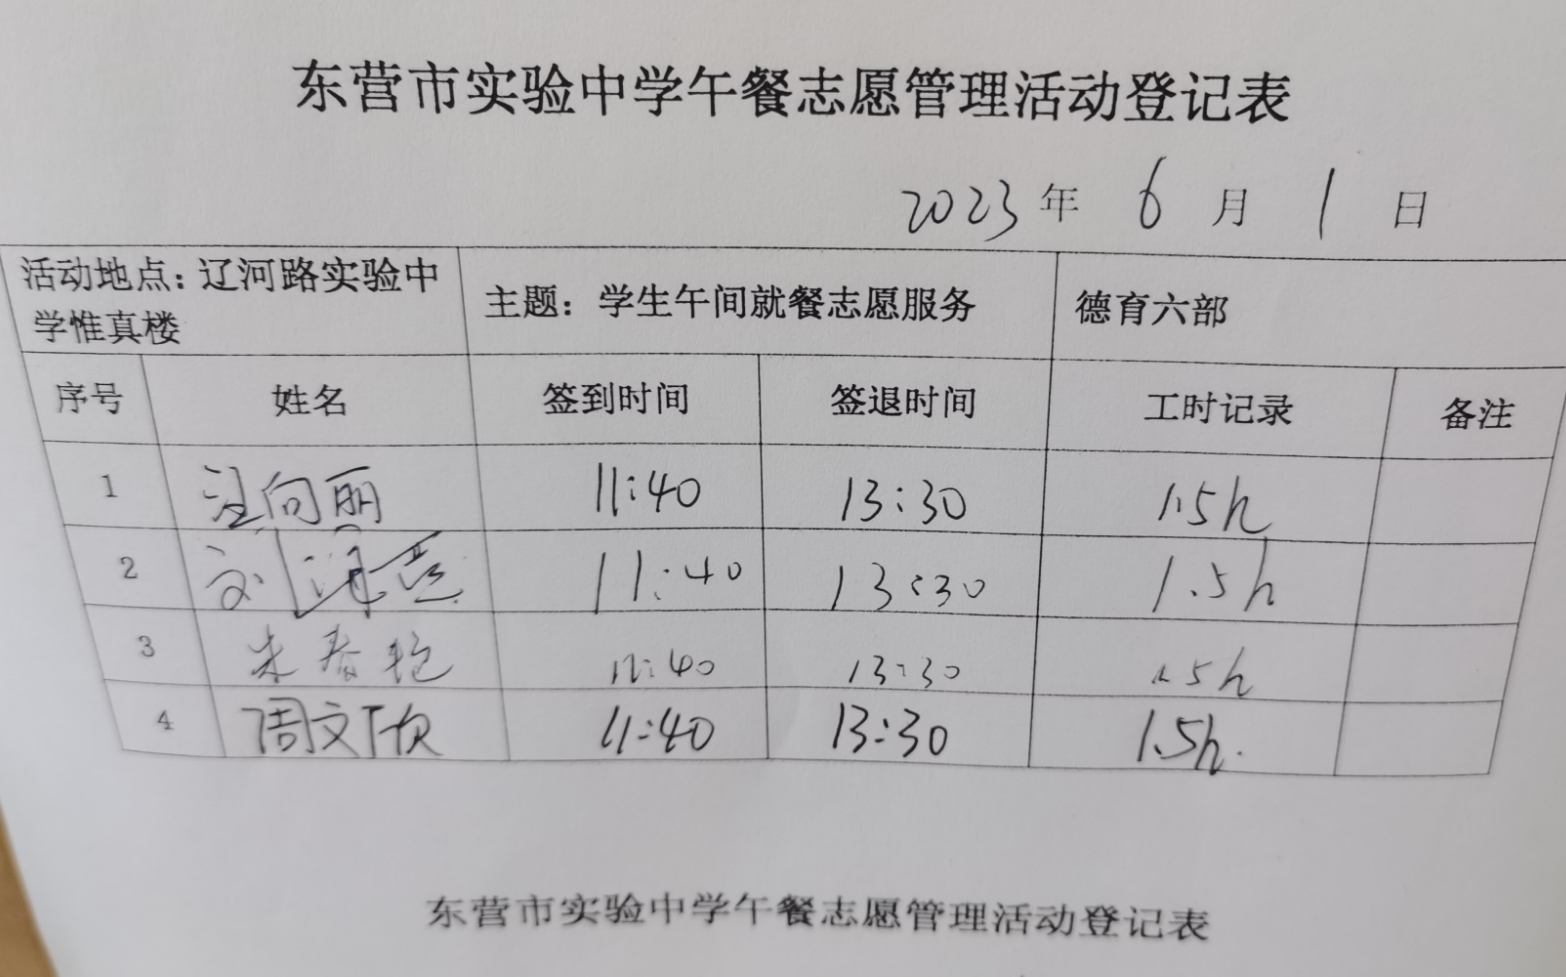 东营市实验中学午餐志愿管理活动登记表
2023年 6月 1日
活动地点：辽河路实验中
学惟真楼
主题：学生午间就餐志愿服务
德育六部
序号 姓名 签到时间 签退时间 工时记录 备注
1 汪向丽 11:40 13:30 1.5h
2 刘 11:40 13:30 1.5h
3 朱春艳 11:40 13:30 1.5h
4 周文欣 11:40 13:30 1.5h.
东营市实验中学午餐志愿管理活动登记表